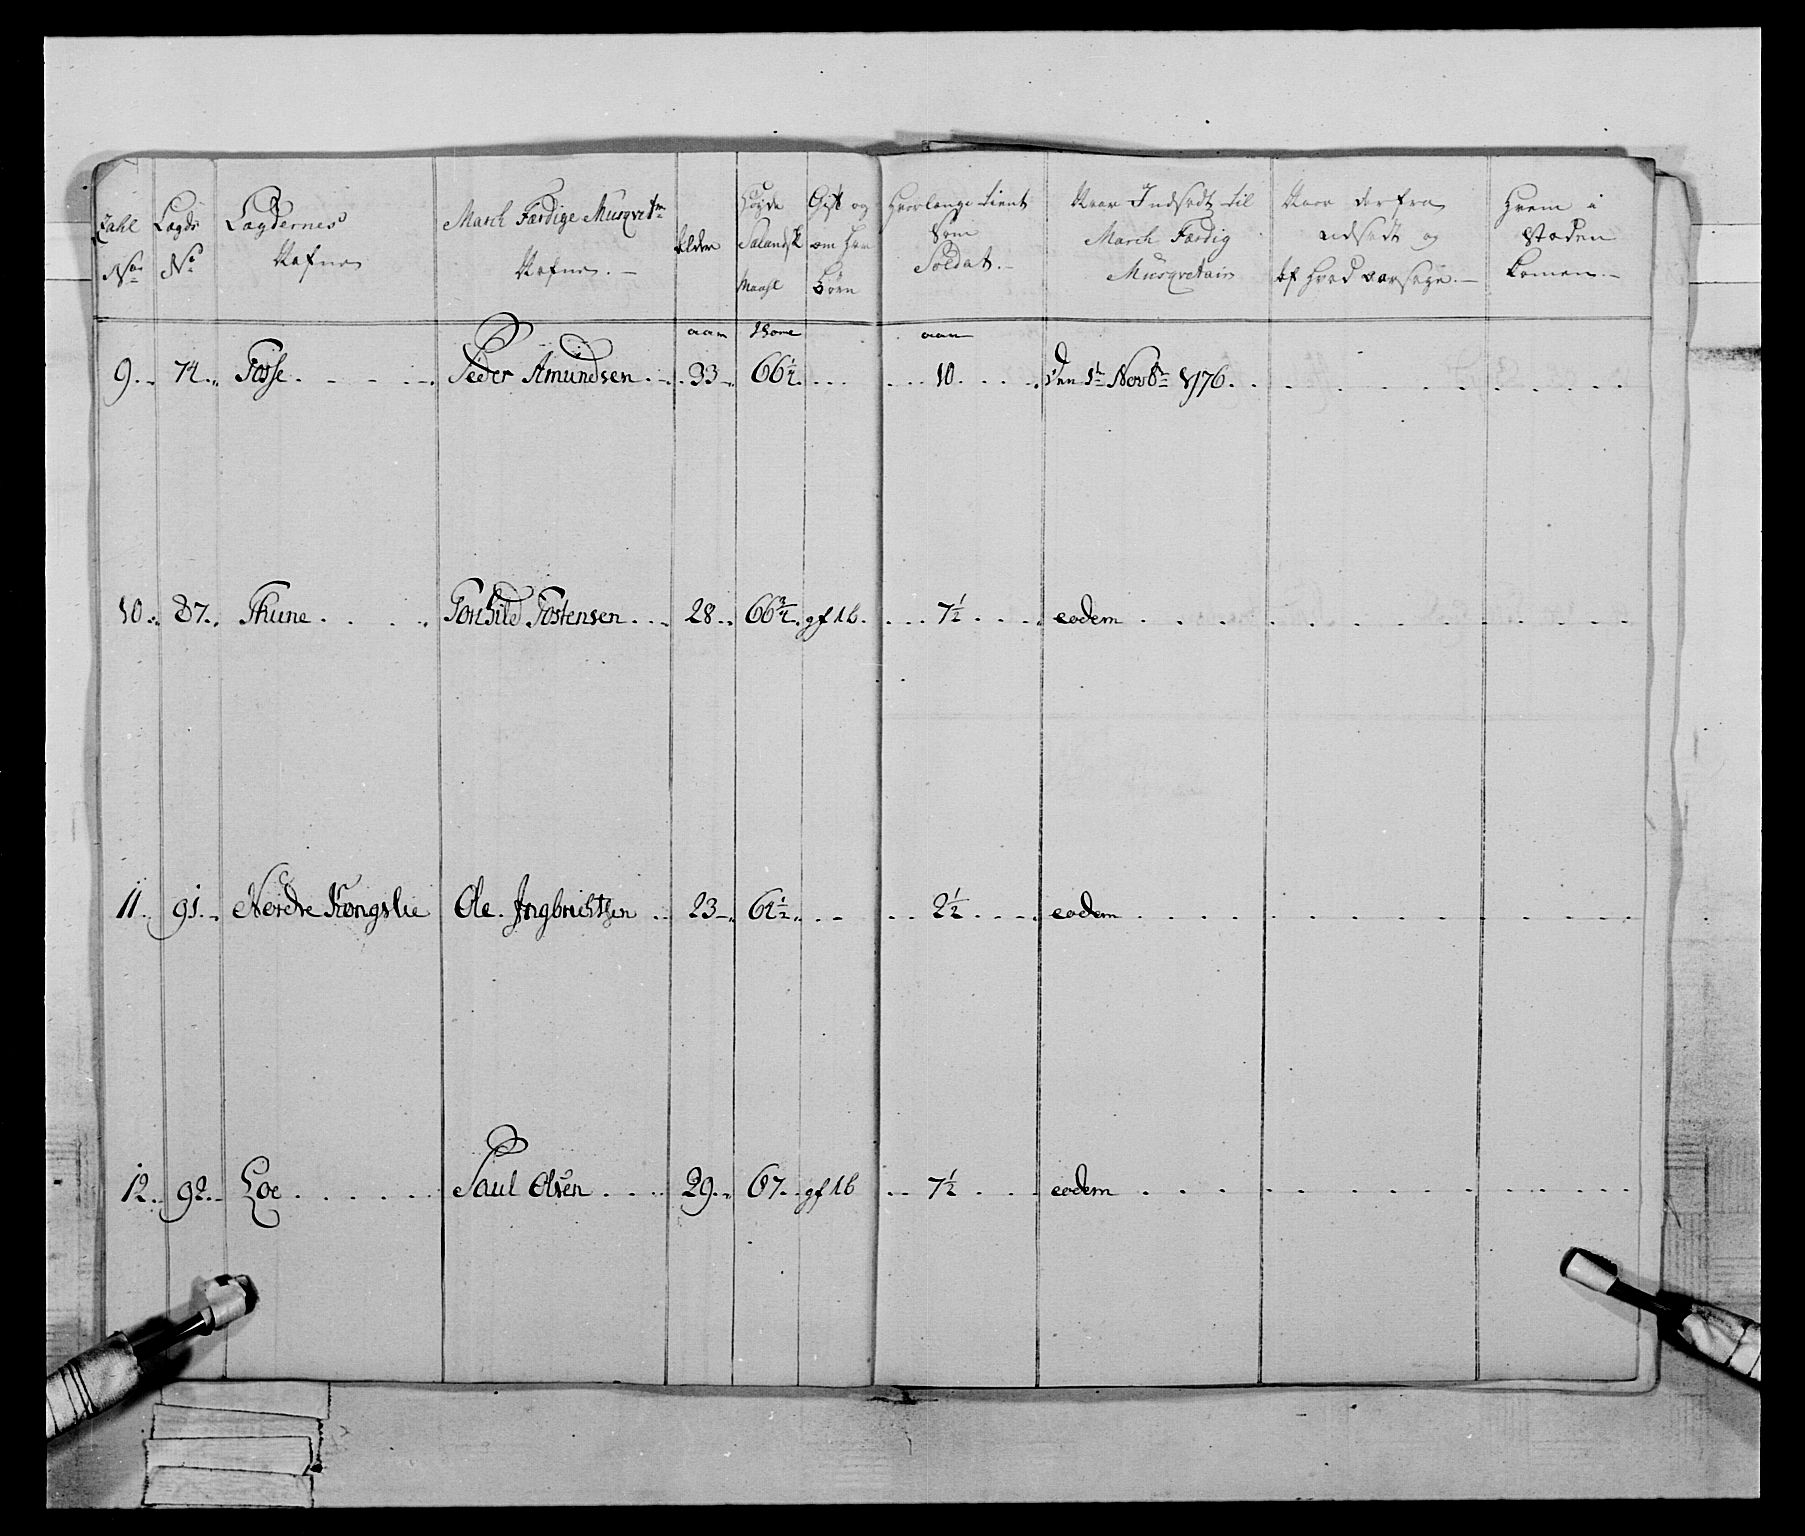 Zahl No | Lagds No | Lægdernes Nafne | March Færdige Musqvetrs Nafne. | Alder | Høyde Sælandsk Maahl | Gift og om har Børn | Hvorlænge tient Som Soldat. | Naar Indsadt til March Færdig Musqvetair | Naar derfra udsadt og af hvad aarsage. | Hvem i Stæden komen.
aar | Tome | aar
9. | 74. | Fosse | Peder Amundsen | 33 | 66 1/4 | | 10 | Den 1te Novbr 1776
10. | 87. | Thune | Torhild Tostensen | 28 | 66 3/4 | gf 1b | 7 1/2 | eodem
11. | 91. | Nordre Kongslie | Ole Jngbrichtsen | 23 | 64 1/2 | | 2 1/2 | eodem
12. | 92. | Loe | Paul Olsen | 29 | 67 | gf 1b | 7 1/2 | eodem